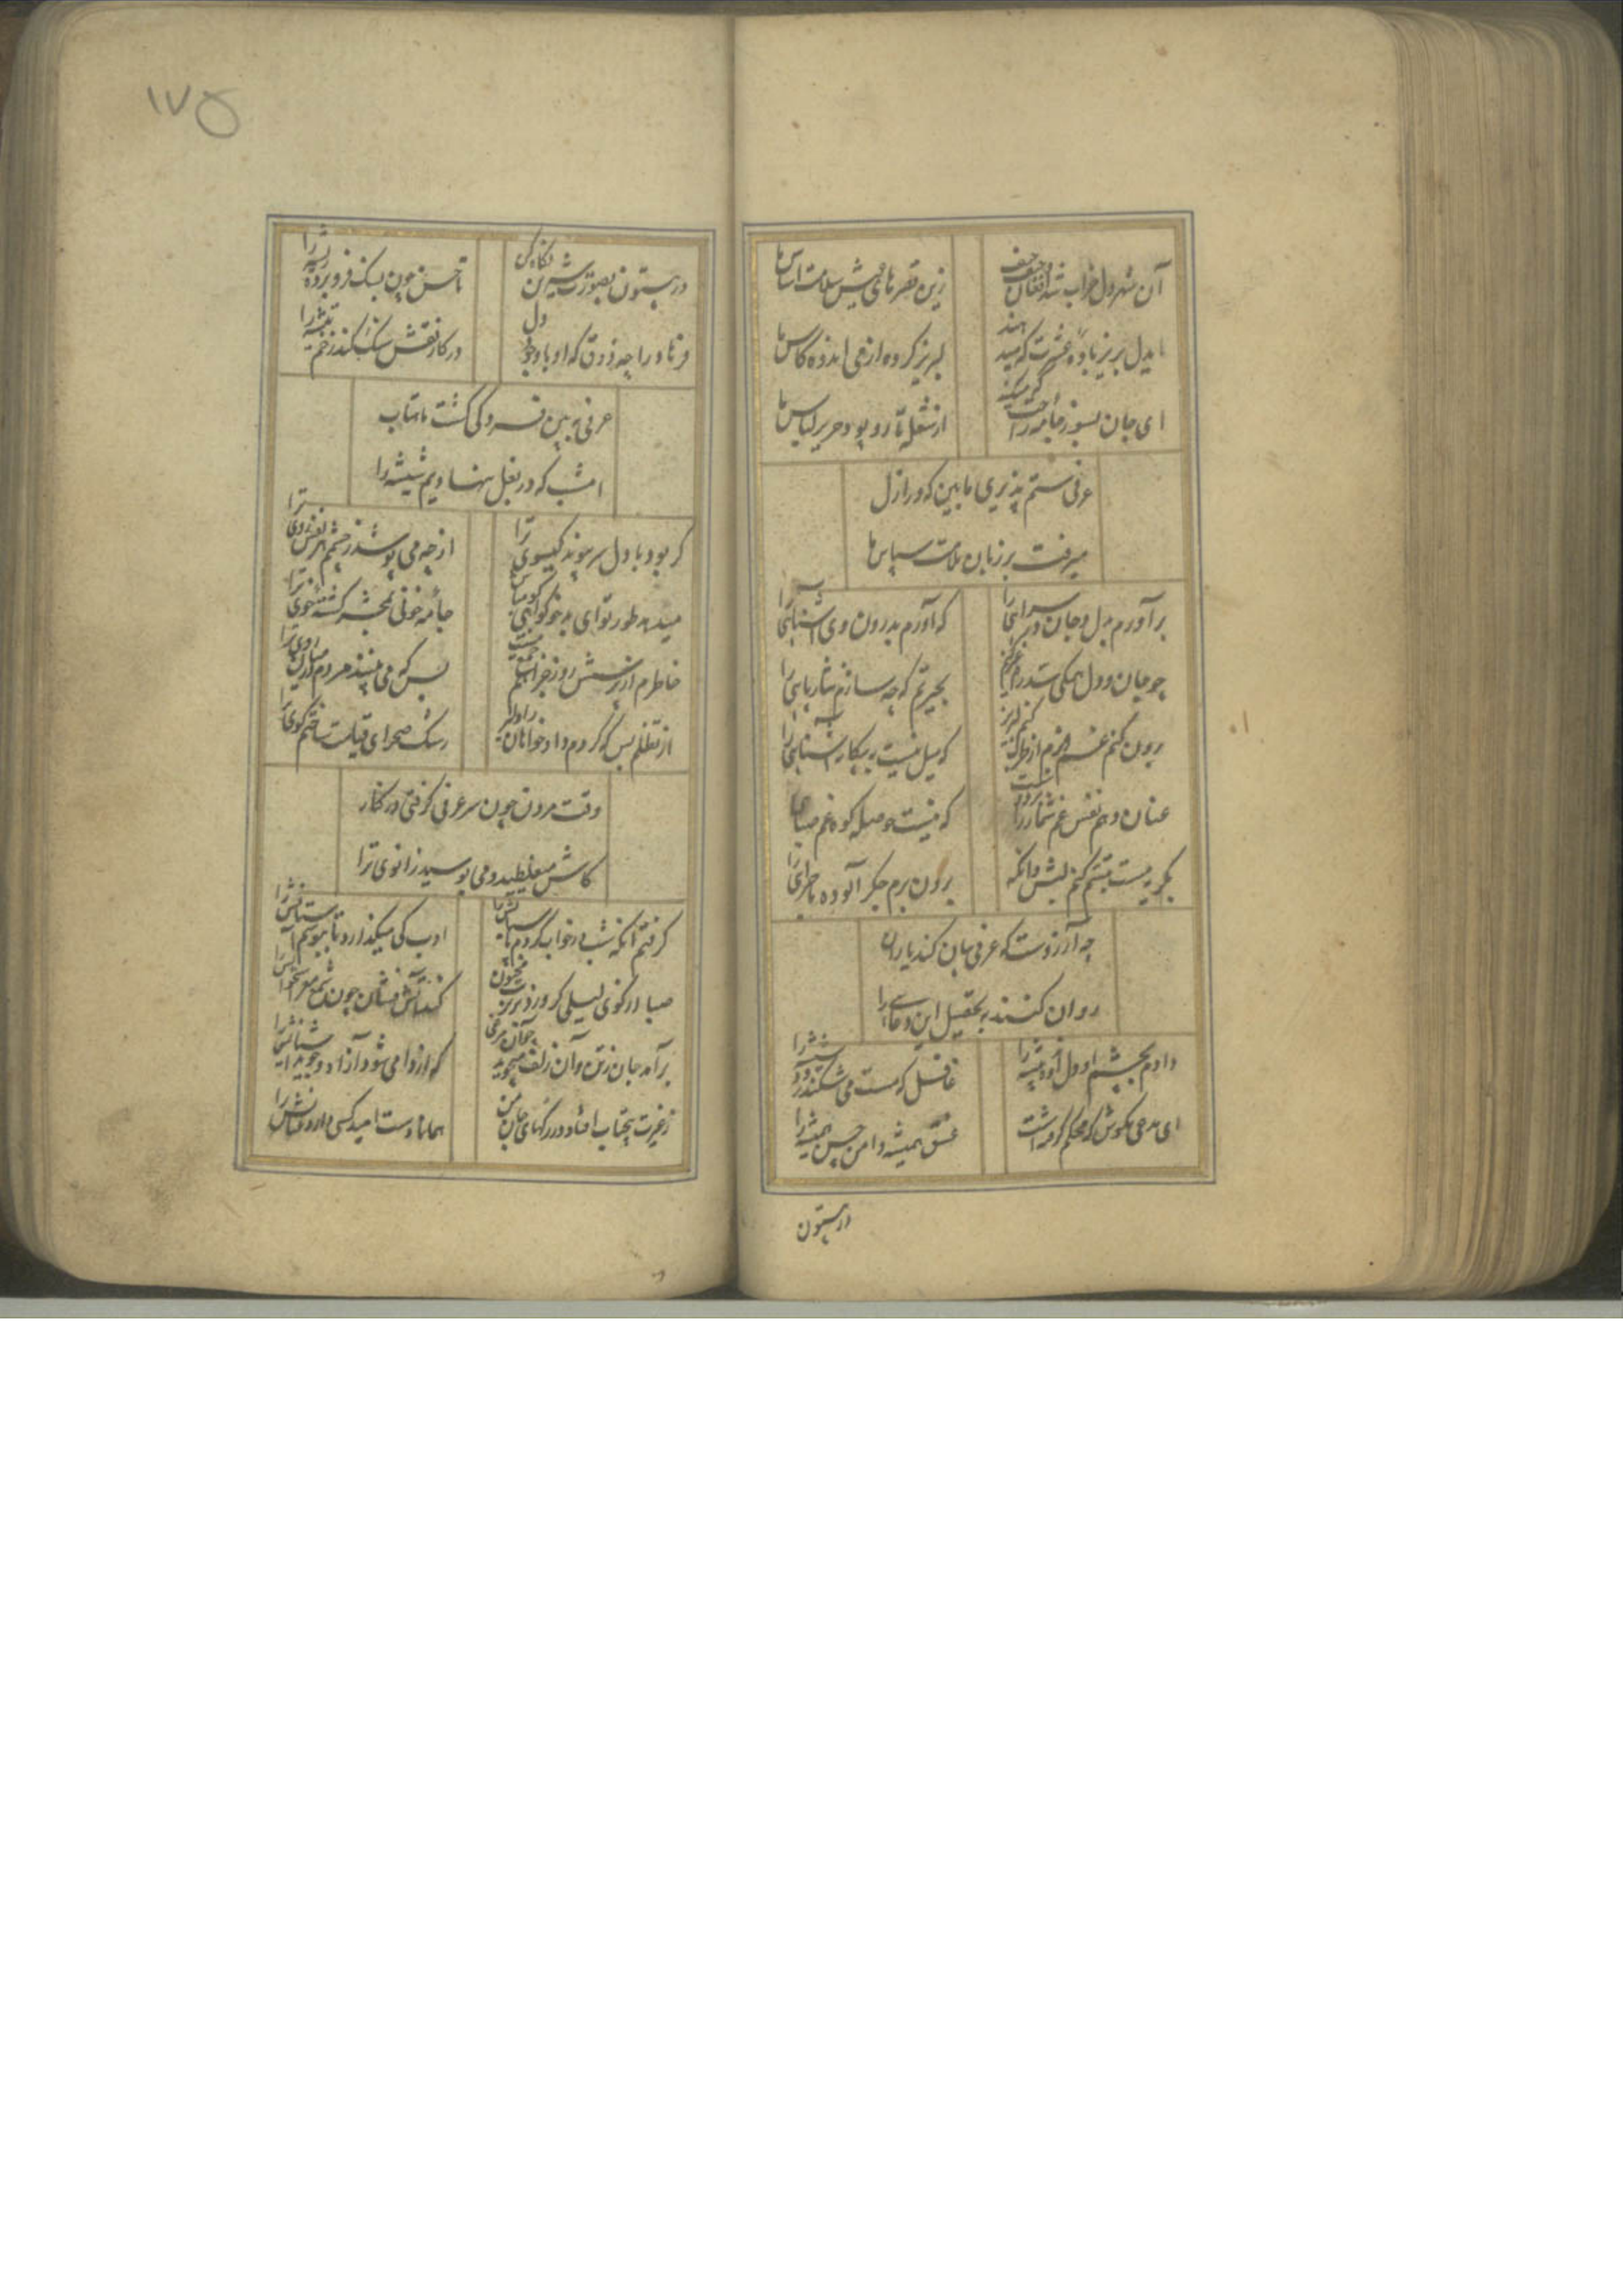 آن شهر دل خراب شد افغان و حیف حیف
زین قصرهای محکم پیش سلامت اساس‌ها
لبریز کرده از می اندوه کاس‌ها
ای جان بسوز جامه راحت که میکند
از شعله تار و پود حریر لباس‌ها
عرفی ستم پذیری ما بین که در ازل
میرفت بر زبان ملامت سپاس‌ها
برآورم بدل و جان در سرایی را
که آورم بدرون وی آشنایی را
چو جان و دل همگی شد
بحیرتم که چه سازم نثار پایی را
برون کنم غم هم از طرف
که میل نیست به بیگانه آشنایی را
عنان دهم نفس غم شمار را
که نیست حوصله کوه غم صبایی را
بگریه مست تبسم کنم لبش وانگه
برون برم جگر آلوده ماجرایی را
چه آرزوست که عرفی بیان کند یاران
روان کنند به تحصیل این دعایی را
دادم بچشم او دل اندوه پیشه را
غافل که مست می شکند زود شیشه را
ای مدعی بکوش که محکم گرفته است
عشق همیشه دامن حسن همیشه را
در بیستون
۱۷۵
در بیستون بصورت شیرین نگاه کن
تا حسن چون بسنگ فرو برده ریشه را
فرهاد را چه ذوق که او با وجود دل
در کار نقش سنگ کند زخم تیشه را
عرفی ببین فسردگی گشت ماهتاب
امشب که در بغل ننهادیم شیشه را
گر بود با دل سر پیوند گیسوی ترا
از چه می پوشد ز چشم مهر نقش روی ترا
میدهد طور تو ای بدخو گواهی
جامه خونی بمحشر کشته خوی ترا
خاطرم از پرسش روز جزا
بس که می بینند مردم در میان روی ترا
از تظلم بس که کردم دادخواهان را دلیر
رشک صحرای قیامت ساختم کوی ترا
وقت مردن چون سر عرفی گرفتی در کنار
کاش میغلطید و می بوسید زانوی ترا
گرفتم آنکه شب در خواب کردم پاسبانش را
ادب کی میگذارد تا ببوسم آستانش را
صبا از کوی لیلی گر وزد بر تربت مجنون
کند آتش فشان چون شمع مغز استخوانش را
برآمد جان ز تن و آن زلف میجوید چو آن مرغی
که از دام می شود آزاد و جوید آشیانش را
ز غیرت پیچ تاب افتاد در رگهای جان من
همانا دست امید کسی دارد عنانش را